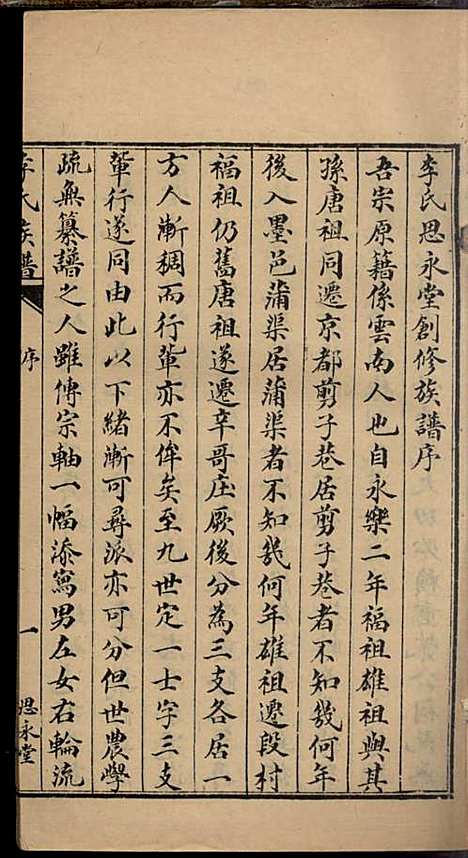 李氏思永堂創修族譜序
吾宗原籍係雲南人也自永樂二年福祖雄祖與其
孫唐祖同遷京都剪子巷居剪子巷者不知幾何年
後入墨邑蒲渠居蒲渠者不知幾何年雄祖遷段村
福祖仍舊唐祖遂遷辛哥庄厥後分為三支各居一
方人漸稠而行輩亦不侔矣至九世定一士字三支
輩行遂同由此以下緒漸可尋派亦可分但世農學
疏無纂譜之人雖傳宗軸一幅添寫男左女右輪流
李氏族譜
序
一
思永堂